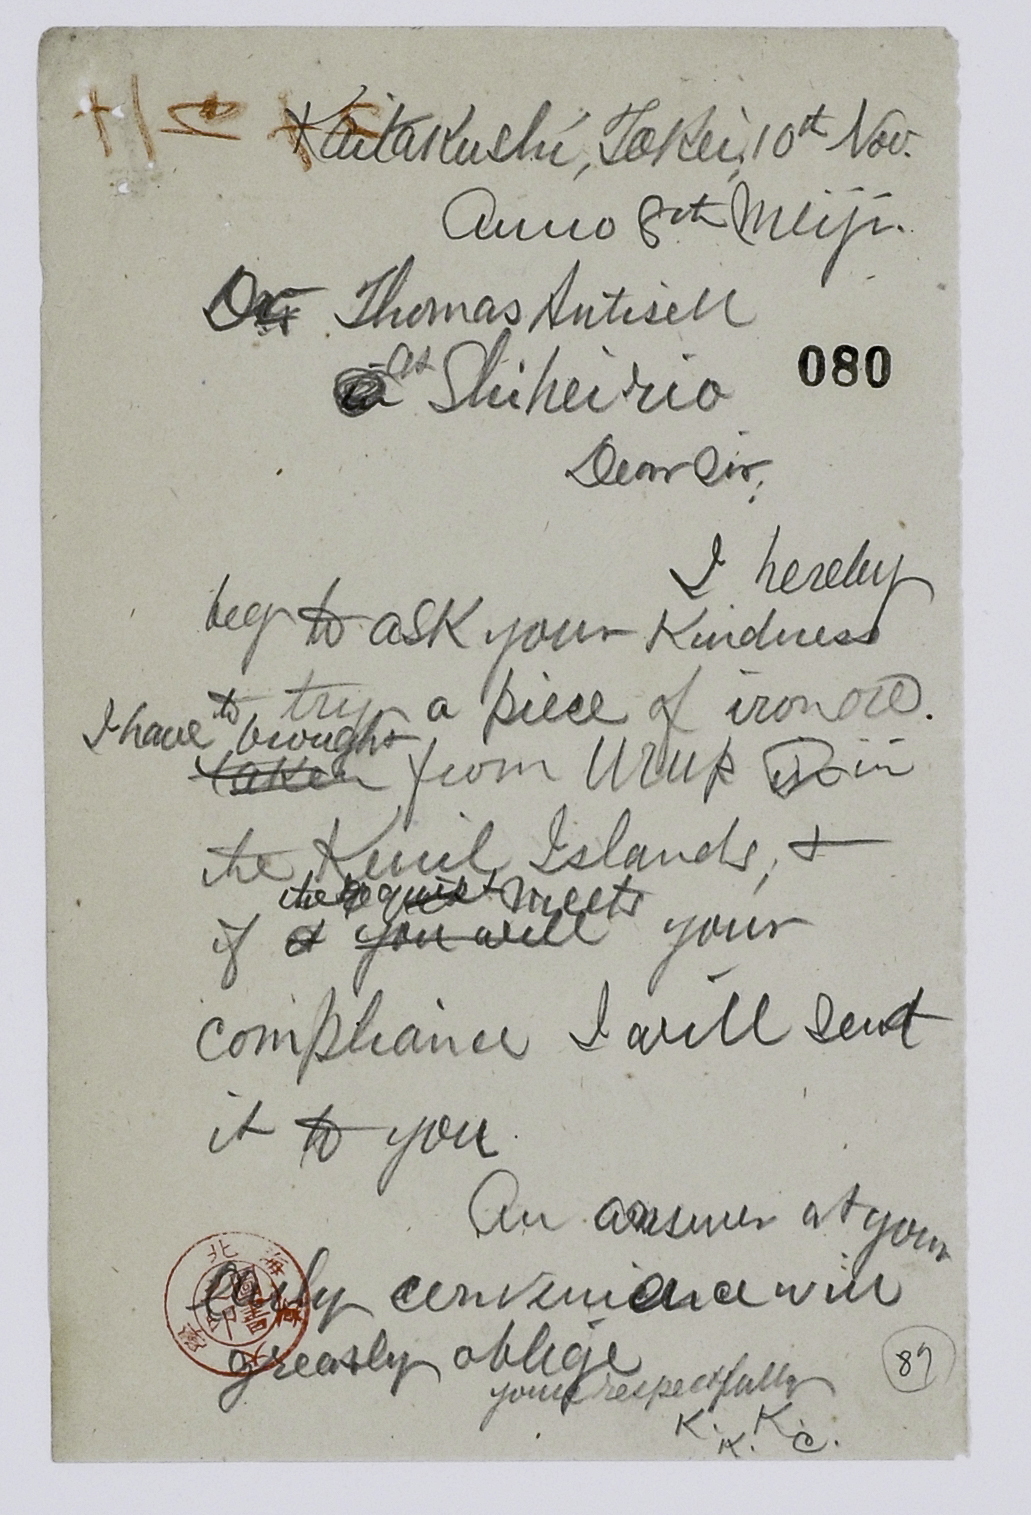 Kaitakushi, Tokei, 10th Nov.
Anno 8th Meiji.
Dr. Thomas Antisell
at Shiheirio
080
Dear Sir,
I hereby
beg to ask your Kindness
to try a piece of iron ore.
I have brought
taken from Urup in
the Kuril Islands, &
the request meets
if you will your
compliance I will send
it to you.
An answer at your
early convenience will
greatly oblige
yours respectfully
K. K. K. C.
89
北海